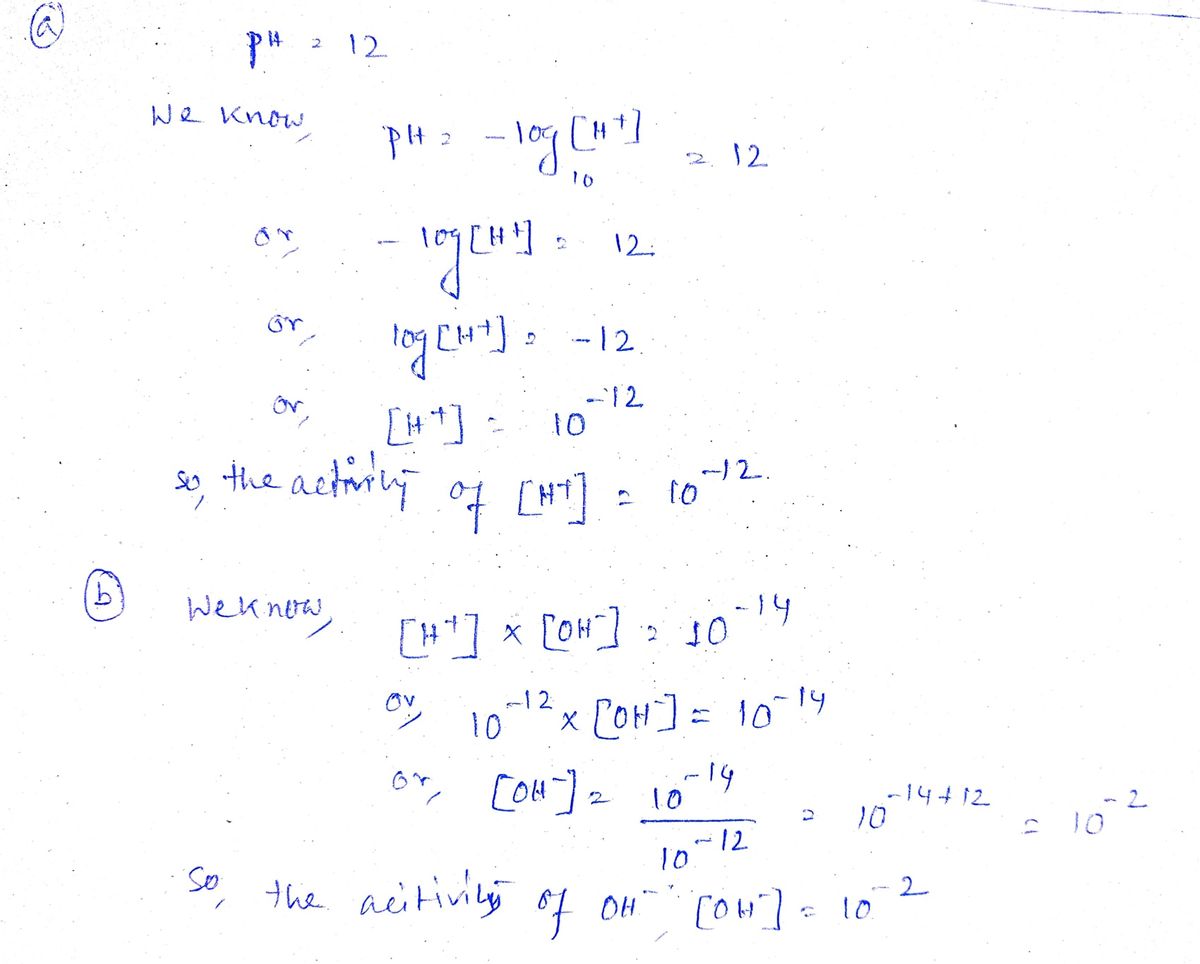 (a) pH = 12
We know, pH = -log₁₀[H⁺] = 12
or, -log[H⁺] = 12.
or, log[H⁺] = -12.
or, [H⁺] = 10⁻¹²
so, the activity of [H⁺] = 10⁻¹².
(b) We know, [H⁺] × [OH⁻] = 10⁻¹⁴
or, 10⁻¹² × [OH⁻] = 10⁻¹⁴
or, [OH⁻] = 10⁻¹⁴ / 10⁻¹² = 10⁻¹⁴⁺¹² = 10⁻²
So, the acitivity of OH⁻ [OH⁻] = 10⁻²